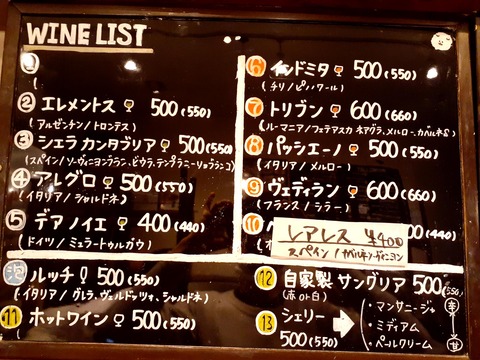 WINE LIST
①
(
② エレメントス 500(550)
(アルゼンチン/トロンテス)
③ シエラ カンタブリア 500(550)
(スペイン/ソーヴィニヨンブラン、ビウラ、テンプラニーリョブランコ)
④ アレグロ 500(550)
(イタリア/シャルドネ)
⑤ デアノイエ 400(440)
(ドイツ/ミュラートゥルガウ)
泡 ルッチ 500(550)
(イタリア/グレラ、ヴェルドッツォ、シャルドネ)
11 ホットワイン 500(550)
⑥ インドミタ 500(550)
(チリ/ピノノワール)
⑦ トリブン 600(660)
(ルーマニア/フェテアスカ ネアグラ、メルロー、カベルネS)
⑧ パッシエーノ 500(550)
(イタリア/メルロー)
⑨ ヴェディラン 600(660)
(フランス/シラー)
10 (440)
レアレス ¥400
スペイン/カベルネソーヴィニヨン
12 自家製 サングリア 500(550)
(赤or白)
13 シェリー
500(550)
・マンサニージャ
・ミディアム
・ペールクリーム
辛
甘